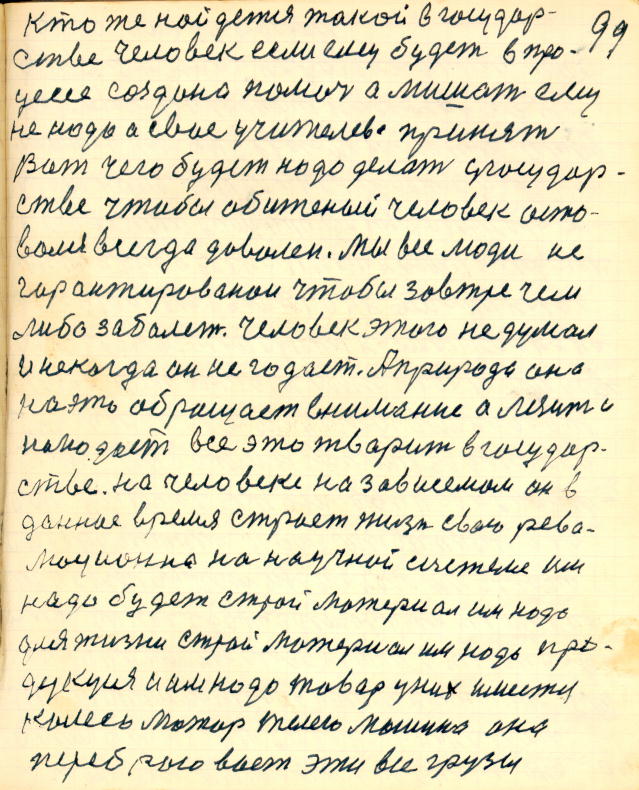 Кто же найдется такой в государ-
стве человек если ему будет в про- 99
цессе создана помоч а мишат ему
не надо а свое учителев принят
Вот чего будет надо делат у государ-
стве чтобы обиженый человек оста-
вался всегда доволен. Мы все люди не
гарантированаи чтобы завтре чем
либо заболет. Человек этого не думал
и некогда он не гадает. А природа она
на эта обращает внимание а лезит и
нападает все это тварит в государ-
стве. на человеке на зависемом он в
данное время строет жизн сваю рева-
люционна на научной системе им
надо будет строй матереиал им надо
для жизни строй матереиал им надо про-
дукция и им надо товар у них имеется
колесо мотор тело машина она
перебрасовает эти все грузы